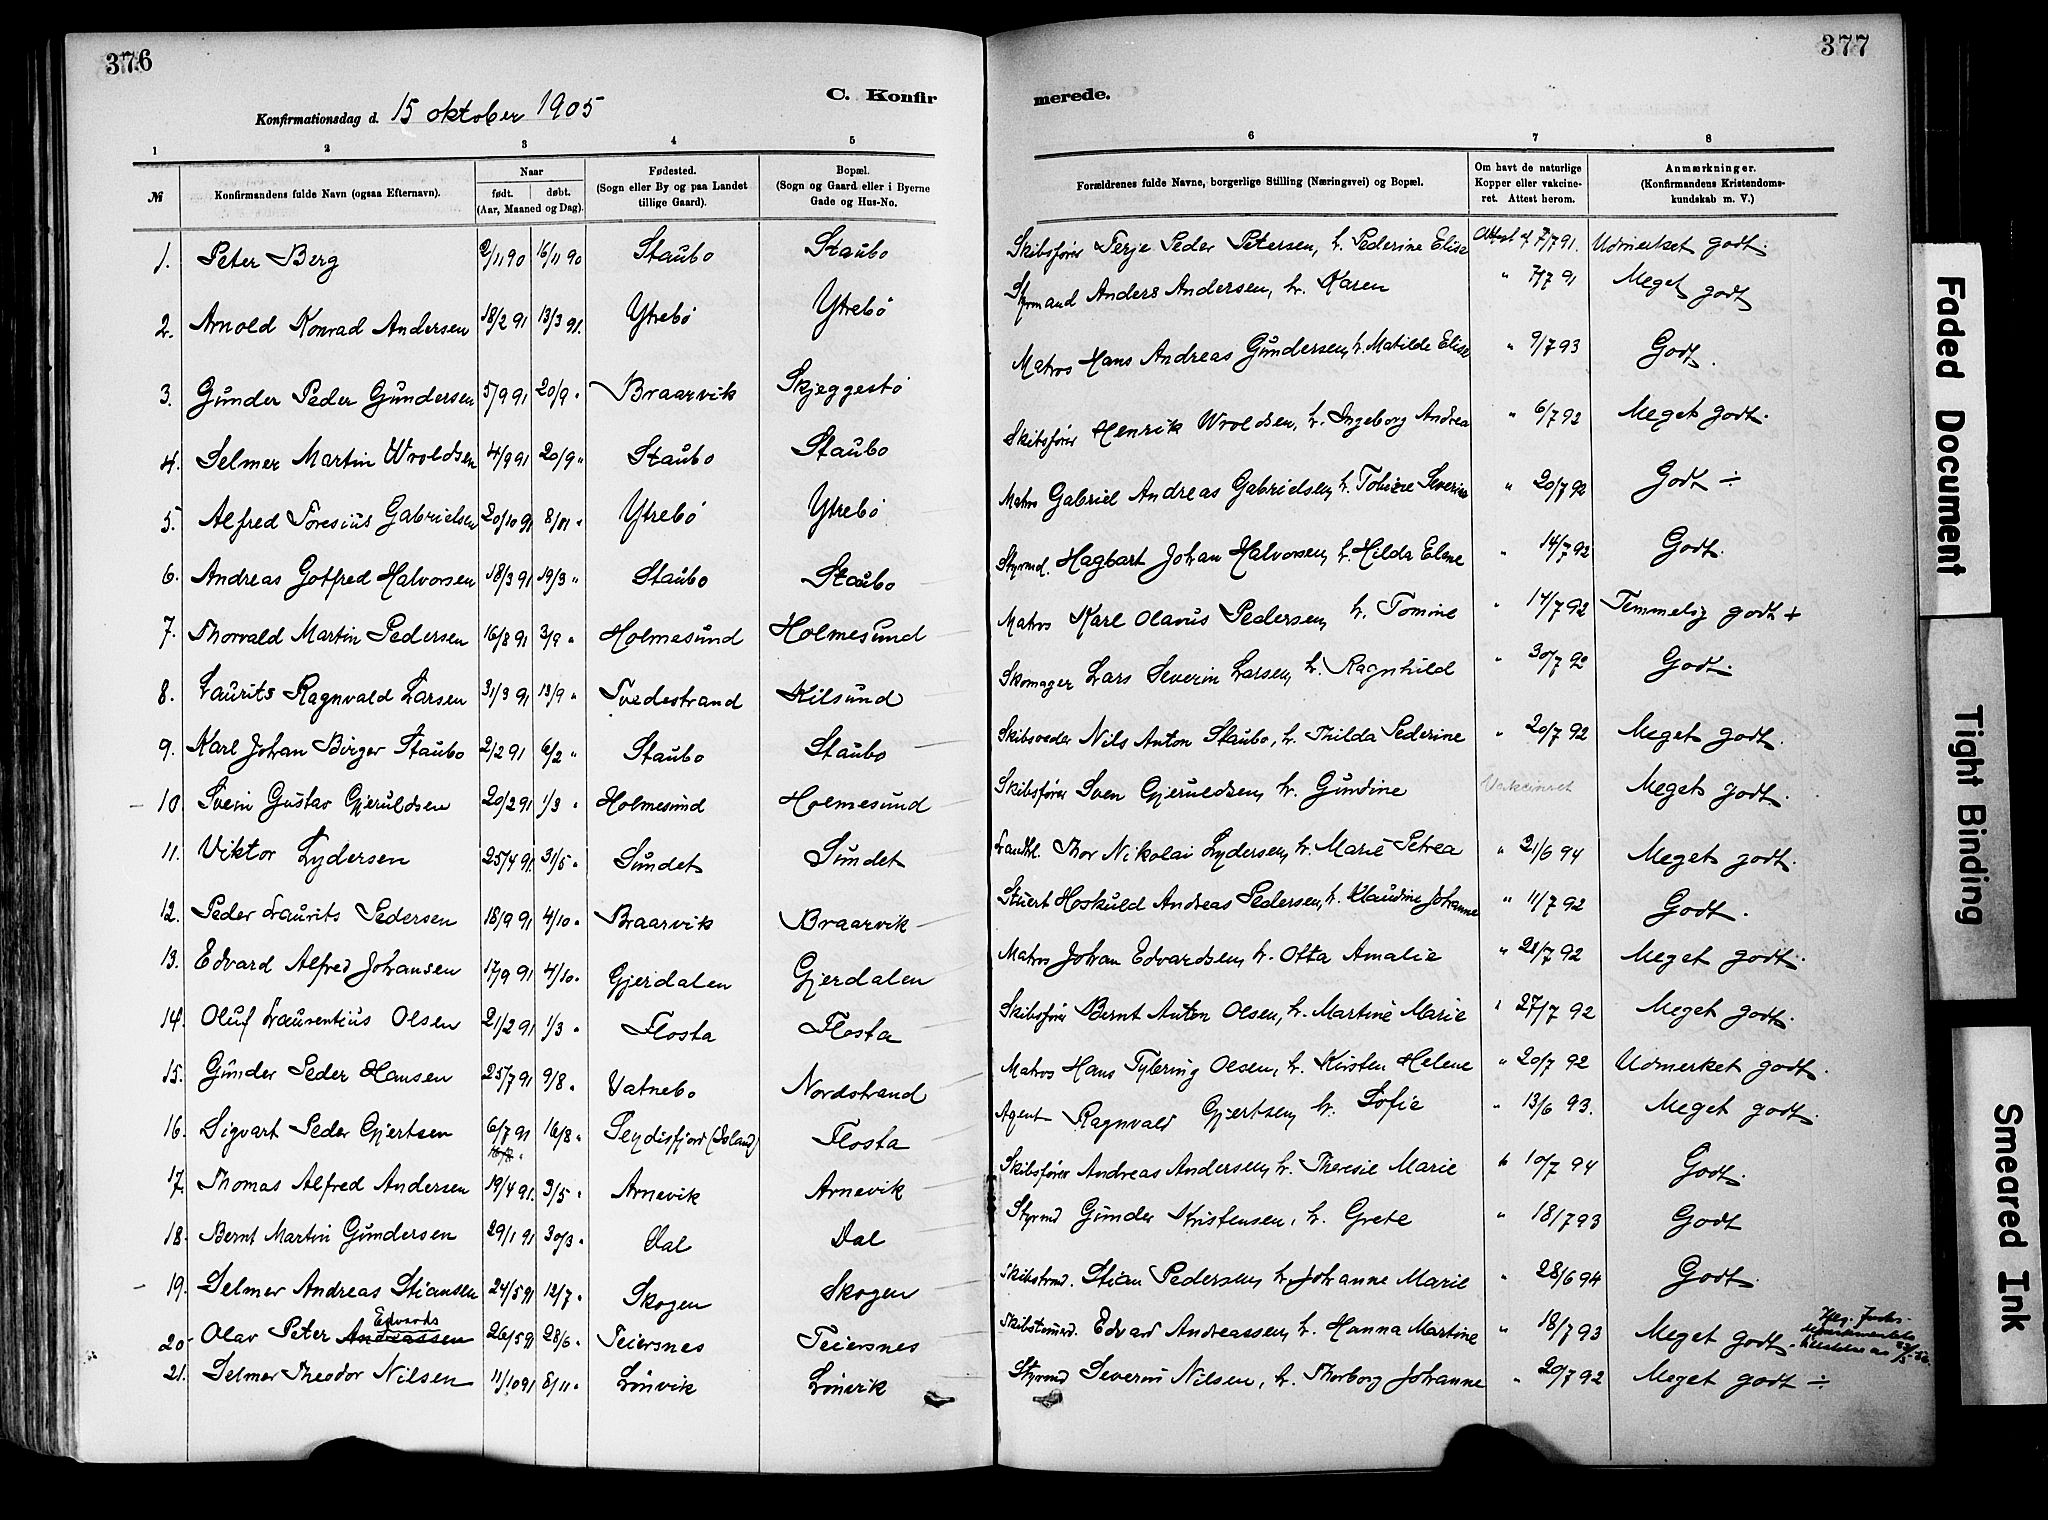 376
377
C. Konfir
merede.
Konfirmationsdag d. 15 oktober 1905
1 2 3 4 5 6 7 8
№ Konfirmandens fulde Navn (ogsaa Efternavn). Naar født. døbt. (Aar, Maaned og Dag). Fødested. (Sogn eller By og paa Landet tillige Gaard). Bopæl. (Sogn og Gaard eller i Byerne Gade og Hus-No. Forældrenes fulde Navne, borgerlige Stilling (Næringsvei) og Bopæl. Om havt de naturlige Kopper eller vakcineret. Attest herom. Anmærkninger. (Konfirmandens Kristendomskundskab m. V.)
1. Peter Berg 2/11 90 16/11 90 Staubo Staubo Skibsfører Terje Peder Petersen, h. Pederine Elise Attest af 7/7 91. Udmerket godt.
2. Arnold Konrad Andersen 18/2 91 13/3 91. Ytrebö Ytrebö Styrmand Anders Andersen, h. Karen " 7/7 91 Meget godt
3. Gunder Peder Gundersen 5/9 91 20/9 " Braarvik Skjeggestö Matros Hans Andreas Gundersen, h. Matilde Elise " 9/7 93 Godt.
4. Selmer Martin Wroldsen 4/9 91 20/9 " Staubo Staubo Skibsfører Henrik Wroldsen, h. Ingeborg Andrea " 6/7 92 Meget godt.
5. Alfred Toresius Gabrielsen 20/10 91 8/11 " Ytrebö Ytrebö Matros Gabriel Andreas Gabrielsen, h. Tobine Severine " 20/7 92 Godt ÷
6. Andreas Gotfred Halvorsen 18/3 91 19/3 " Staubo Staubo Styrmd. Hagbart Johan Halvorsen, h. Hilda Elene " 14/7 92 Godt.
7. Thorvald Martin Pedersen 16/8 91 3/9 " Holmesund Holmesund Matros Karl Olavus Pedersen, h. Tomine " 14/7 92 Temmelig godt +
8. Laurits Ragnvald Larsen 31/3 91 13/9 " Tvedestrand Kilsund Skomager Lars Severin Larsen, h. Ragnhild " 30/7 92 Godt.
9. Karl Johan Birger Staubo 2/2 91 6/2 " Staubo Staubo Skibsreder Nils Anton Staubo, h. Thilda Pederine " 20/7 92 Meget godt.
10. Svein Gustav Gjeruldsen 20/2 91 1/3 " Holmesund Holmesund Skibsfører Sven Gjeruldsen, h. Gundine Vakcineret Meget godt.
11. Viktor Lydersen 25/4 91. 31/5 " Sundet Sundet Landhl. Thor Nikolai Lydersen, h. Marie Petrea " 21/6 94 Meget godt.
12. Peder Laurits Pedersen 18/9 91 4/10 " Braarvik Braarvik Stuert Hoskuld Andreas Pedersen, h. Klaudine Johanne " 11/7 92 Godt.
13. Edvard Alfred Johansen 17/9 91 4/10 " Gjerdalen Gjerdalen Matros Johan Edvardsen, h. Otta Amalie " 21/7 92 Meget godt.
14. Oluf Laurentius Olsen 21/2 91 1/3 " Flosta Flosta Skibsfører Bernt Anton Olsen, h. Martine Marie " 27/7 92 Meget godt.
15. Gunder Peder Hansen 25/7 91 9/8 " Vatnebo Nordstrand Matros Hans Olsen, h. Kirsten Helene " 20/7 92 Udmerket godt.
16. Sigvart Peder Gjertsen 6/7 91 16/8 " Seydisfjord (Island) Flosta Agent Ragnvald Gjertsen, h. Sofie " 13/6 93. Meget godt.
17. Thomas Alfred Andersen 19/4 91. 3/5 " Arnevik Arnevik Skibsfører Andreas Andersen, h. Theresie Marie " 10/7 94 Godt.
18. Bernt Martin Gundersen 29/1 91 30/3 " Dal Dal Styrmd Gunder Kristensen, h. Grete " 18/7 93 Godt
19. Selmer Andreas Stiansen 24/5 91 12/7 " Skogen Skogen Skibstmd. Stian Pedersen, h. Johanne Marie " 28/6 94 Godt.
20. Olav Peter Andreassen Edvards 26/5 91 28/6 " Teiersnes Teiersnes Skibstmmd. Edvard Andreassen, h. Hanna Martine " 18/7 93 Meget godt.
21. Selmer Theodor Nilsen 11/10 91 8/11 " Lönvik Lönvik Styrmd Severin Nilsen, h. Thorborg Johanne " 20/7 92 Meget godt ÷
Faded Document
Tight Binding
Smeared Ink